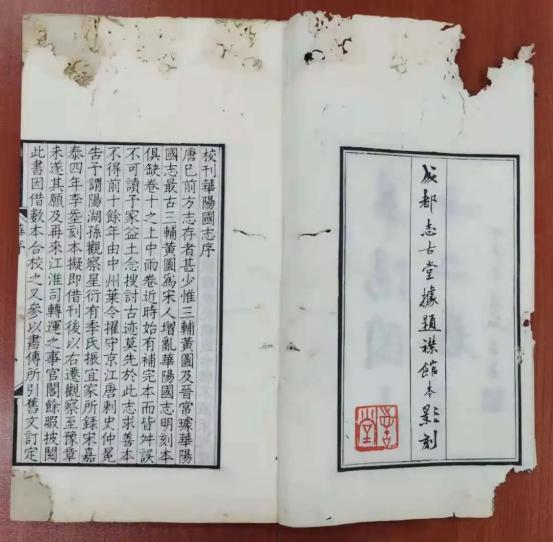 成都志古堂據題襟館本影刻
校刊華陽國志序
唐已前方志存者甚少惟三輔黃圖及晉常璩華陽
國志最古三輔黃圖爲宋人增亂華陽國志明刻本
俱缺卷十之上中兩卷近時始有補完本而皆舛誤
不可讀予家益土念搜討古迹莫先於此志求善本
不得前十餘年由中州葉令擢守京江唐刺史仲冕
告予謂陽湖孫觀察星衍有季氏振宜家所錄宋嘉
泰四年李𡌴刻本擬即借刊後以右遷觀察至豫章
未遂其願及再來江淮司轉運之事官閣餘暇披閱
此書因借數本合校之又參以書傳所引舊文訂定